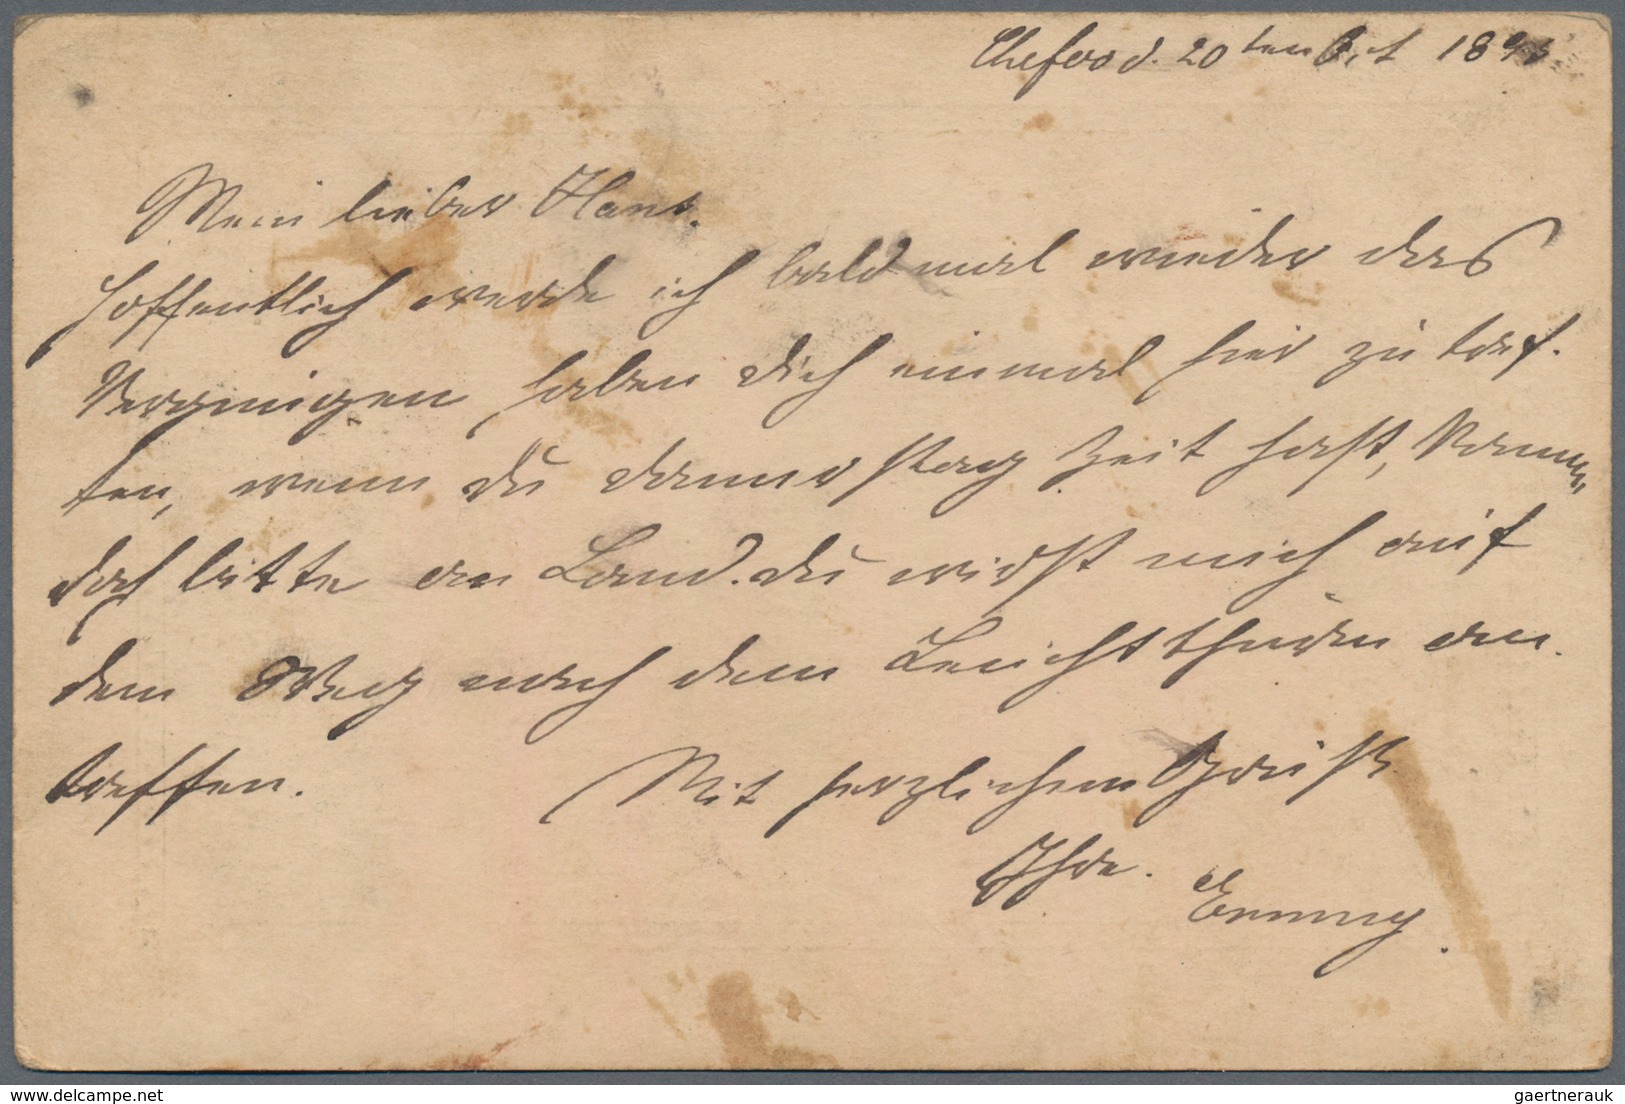 Chefoo d. 20ten Oct 189
Mein lieber Hans.
Hoffentlich werde ich bald mal wieder das
Vergnügen haben dich einmal hier zu tref-
fen, wenn du Zeit hast, komm
doch bitte an Land. du wirst mich auf
dem Weg nach dem Leuchtthurm an
treffen. Mit herzlichem Gruß
Ihre. Emmy.
delcampe.net
gaertnerauk